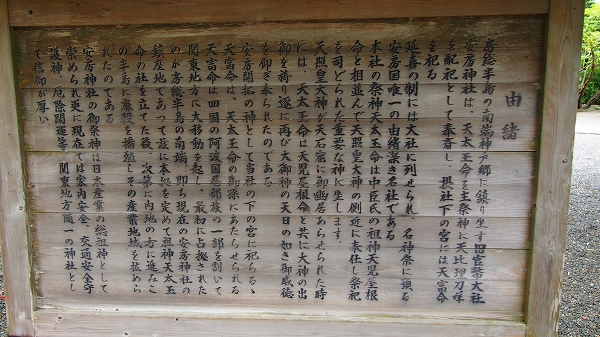 由緒
房総半島の南端神戸郷に鎮り坐す旧官幣大社
安房神社は、天太玉命を主祭神に天比理刀咩命
を配祀として奉斎し、摂社下の宮には天富命
を祀る
延喜の制には大社に列せられ、名神祭に預る
安房国唯一の由緒深き名社である
本社の祭神天太玉命は中臣氏の祖神天児屋根
命と相並んで天照皇大神の側近に奉仕し祭祀
を司どられた重要な神に坐します。
天照皇大神が天石窟に御幽居あらせられた時
には、天太玉命は天児屋根命と共に大神の出
御を祷り遂に再び大御神の天日の如き御威徳
を仰ぎ奉られたのである
安房開拓の神として当社の下の宮に祀らるゝ
天富命は、天太玉命の御孫にあたらせられる
天富命は四国の阿波国忌部族の一部を割いて
関東地方に大移動を起し、最初に占拠された
のが房総半島の南端、即ち現在の安房神社の
鎮座地であって茲に本拠を定めて祖神天太玉
命の社を立てた後、次第に内地の方に進みこ
の半島に麻穀を播殖しその産業地域を拡めら
れたのである
安房神社の御祭神は日本産業の総祖神として
崇められ更に現在では家内安全、交通安全守
護神、厄除開運等、関東地方随一の神社とし
て信仰が厚い